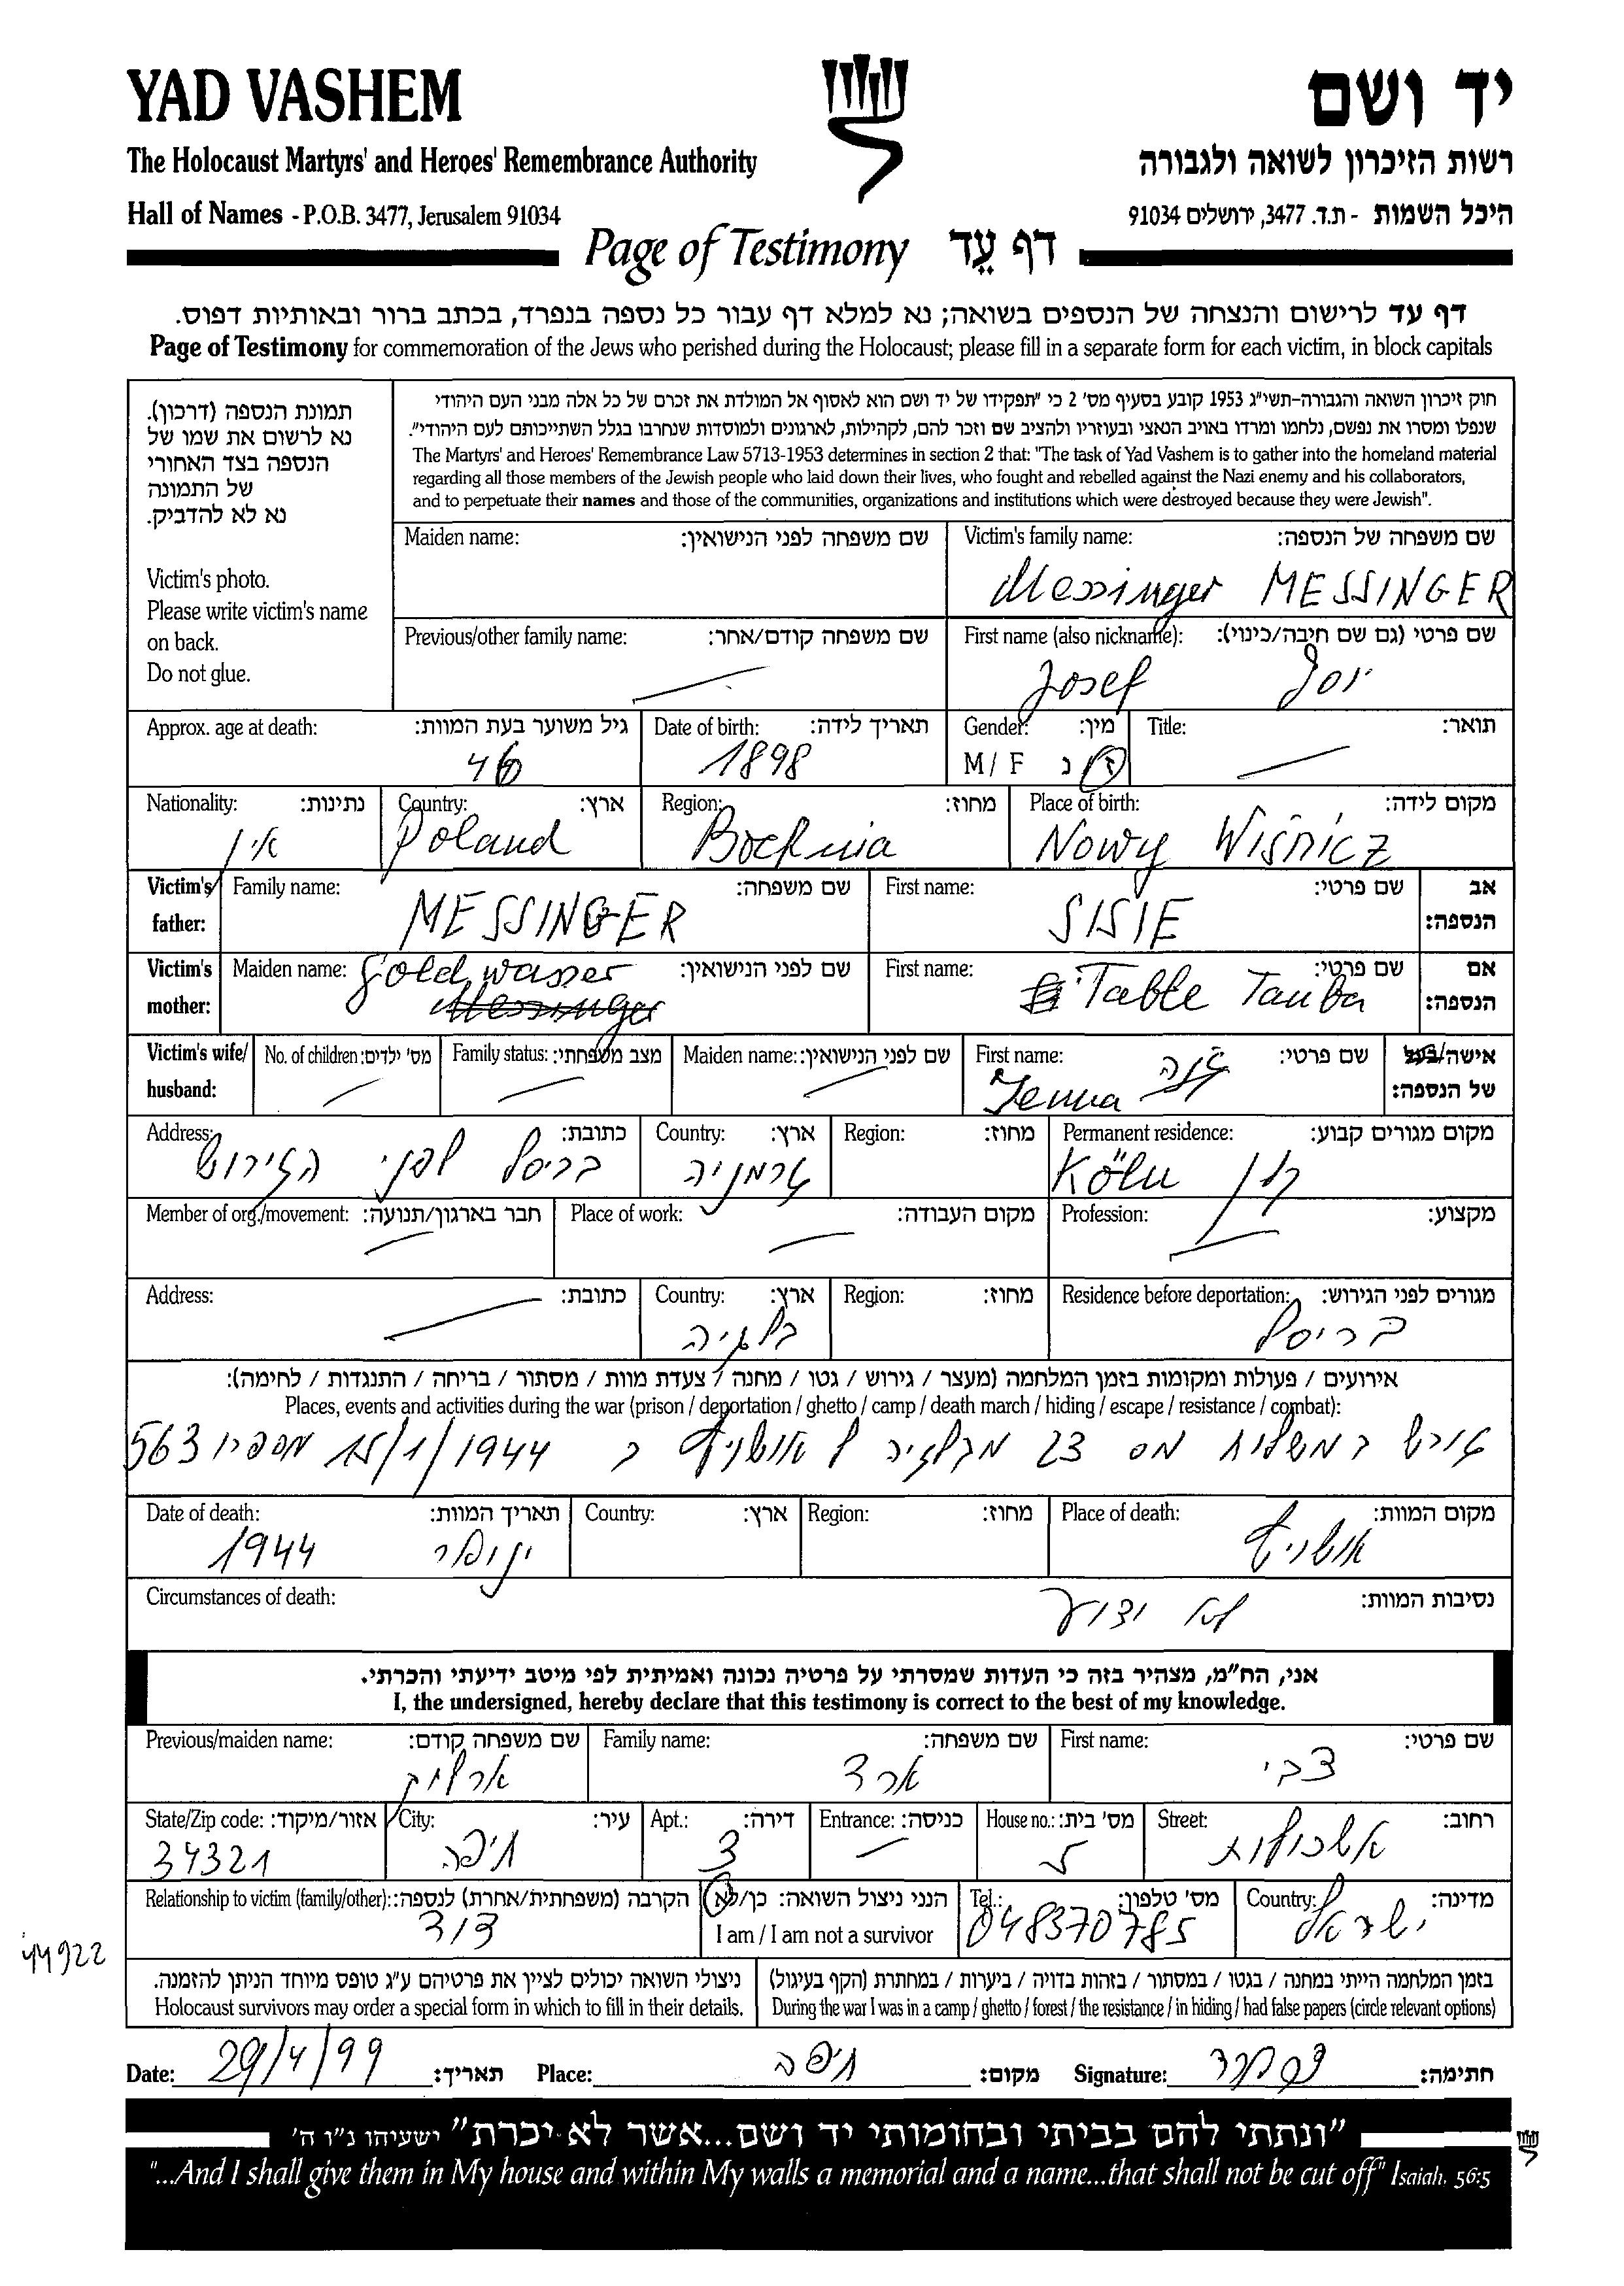 YAD VASHEM
יד ושם
The Holocaust Martyrs' and Heroes' Remembrance Authority
רשות הזיכרון לשואה ולגבורה
Hall of Names - P.O.B. 3477, Jerusalem 91034
היכל השמות - ת.ד. 3477, ירושלים 91034
Page of Testimony דף עֵד
דף עד לרישום והנצחה של הנספים בשואה; נא למלא דף עבור כל נספה בנפרד, בכתב ברור ובאותיות דפוס.
Page of Testimony for commemoration of the Jews who perished during the Holocaust; please fill in a separate form for each victim, in block capitals
תמונת הנספה (דרכון).
נא לרשום את שמו של
הנספה בצד האחורי
של התמונה
נא לא להדביק.
Victim's photo.
Please write victim's name
on back.
Do not glue.
חוק זיכרון השואה והגבורה-תשי"ג 1953 קובע בסעיף מס' 2 כי "תפקידו של יד ושם הוא לאסוף אל המולדת את זכרם של כל אלה מבני העם היהודי
שנפלו ומסרו את נפשם, נלחמו ומרדו באויב הנאצי ובעוזריו ולהציב שם וזכר להם, לקהילות, לארגונים ולמוסדות שנחרבו בגלל השתייכותם לעם היהודי".
The Martyrs' and Heroes' Remembrance Law 5713-1953 determines in section 2 that: "The task of Yad Vashem is to gather into the homeland material
regarding all those members of the Jewish people who laid down their lives, who fought and rebelled against the Nazi enemy and his collaborators,
and to perpetuate their names and those of the communities, organizations and institutions which were destroyed because they were Jewish".
Maiden name: שם משפחה לפני הנישואין:
Victim's family name: שם משפחה של הנספה:
Messinger MESSINGER
Previous/other family name: שם משפחה קודם/אחר:
First name (also nickname): שם פרטי (גם שם חיבה/כינוי):
Josef יוסף
Approx. age at death: גיל משוער בעת המוות:
46
Date of birth: תאריך לידה:
1898
Gender: מין:
M / F ז נ
Title: תואר:
Nationality: נתינות:
אין
Country: ארץ:
Poland
Region: מחוז:
Bochnia
Place of birth: מקום לידה:
Nowy Wiśnicz
Victim's father: Family name: שם משפחה:
MESSINGER
First name: שם פרטי: אב הנספה:
SISIE
Victim's mother: Maiden name: שם לפני הנישואין:
Goldwasser
Messinger
First name: שם פרטי: אם הנספה:
Table Tauba
Victim's wife/ husband: No. of children: מס' ילדים: Family status: מצב משפחתי: Maiden name: שם לפני הנישואין:
First name: שם פרטי: אישה/בעל של הנספה:
Jenna
Address: כתובת:
בריסל לפני הגירוש
Country: ארץ:
גרמניה
Region: מחוז:
Permanent residence: מקום מגורים קבוע:
Köln קלן
Member of org./movement: חבר בארגון/תנועה: Place of work: מקום העבודה: Profession: מקצוע:
Address: כתובת:
Country: ארץ:
בלגיה
Region: מחוז:
Residence before deportation: מגורים לפני הגירוש:
בריסל
אירועים / פעולות ומקומות בזמן המלחמה (מעצר / גירוש / גטו / מחנה / צעדת מוות / מסתור / בריחה / התנגדות / לחימה):
Places, events and activities during the war (prison / deportation / ghetto / camp / death march / hiding / escape / resistance / combat):
גורש במשלוח מס 23 מבלגיה ל אושויץ ב 15/1/1944 מספרו 563
Date of death: תאריך המוות:
ינואר 1944
Country: ארץ: Region: מחוז:
Place of death: מקום המוות:
אושויץ
Circumstances of death: נסיבות המוות:
לא ידוע
אני, הח"מ, מצהיר בזה כי העדות שמסרתי על פרטיה נכונה ואמיתית לפי מיטב ידיעתי והכרתי.
I, the undersigned, hereby declare that this testimony is correct to the best of my knowledge.
Previous/maiden name: שם משפחה קודם:
Family name: שם משפחה:
ארד
First name: שם פרטי:
צבי
State/Zip code: אזור/מיקוד:
34321
City: עיר:
חיפה
Apt.: דירה:
3
Entrance: כניסה:
House no.: מס' בית:
Street: רחוב:
אשכולות
Relationship to victim (family/other): הקרבה (משפחתית/אחרת) לנספה:
דוד
הנני ניצול השואה: כן/לא
I am / I am not a survivor
Tel.: מס' טלפון:
048370785
Country: מדינה:
ישראל
44922
ניצולי השואה יכולים לציין את פרטיהם ע"ג טופס מיוחד הניתן להזמנה.
Holocaust survivors may order a special form in which to fill in their details.
בזמן המלחמה הייתי במחנה / בגטו / במסתור / בזהות בדויה / ביערות / במחתרת (הקף בעיגול)
During the war I was in a camp / ghetto / forest / the resistance / in hiding / had false papers (circle relevant options)
Date: 29/4/99 תאריך: Place: חיפה מקום: Signature: חתימה:
"ונתתי להם בביתי ובחומותי יד ושם...אשר לא יכרת" ישעיהו נ"ו ה'
"...And I shall give them in My house and within My walls a memorial and a name...that shall not be cut off" Isaiah, 56:5